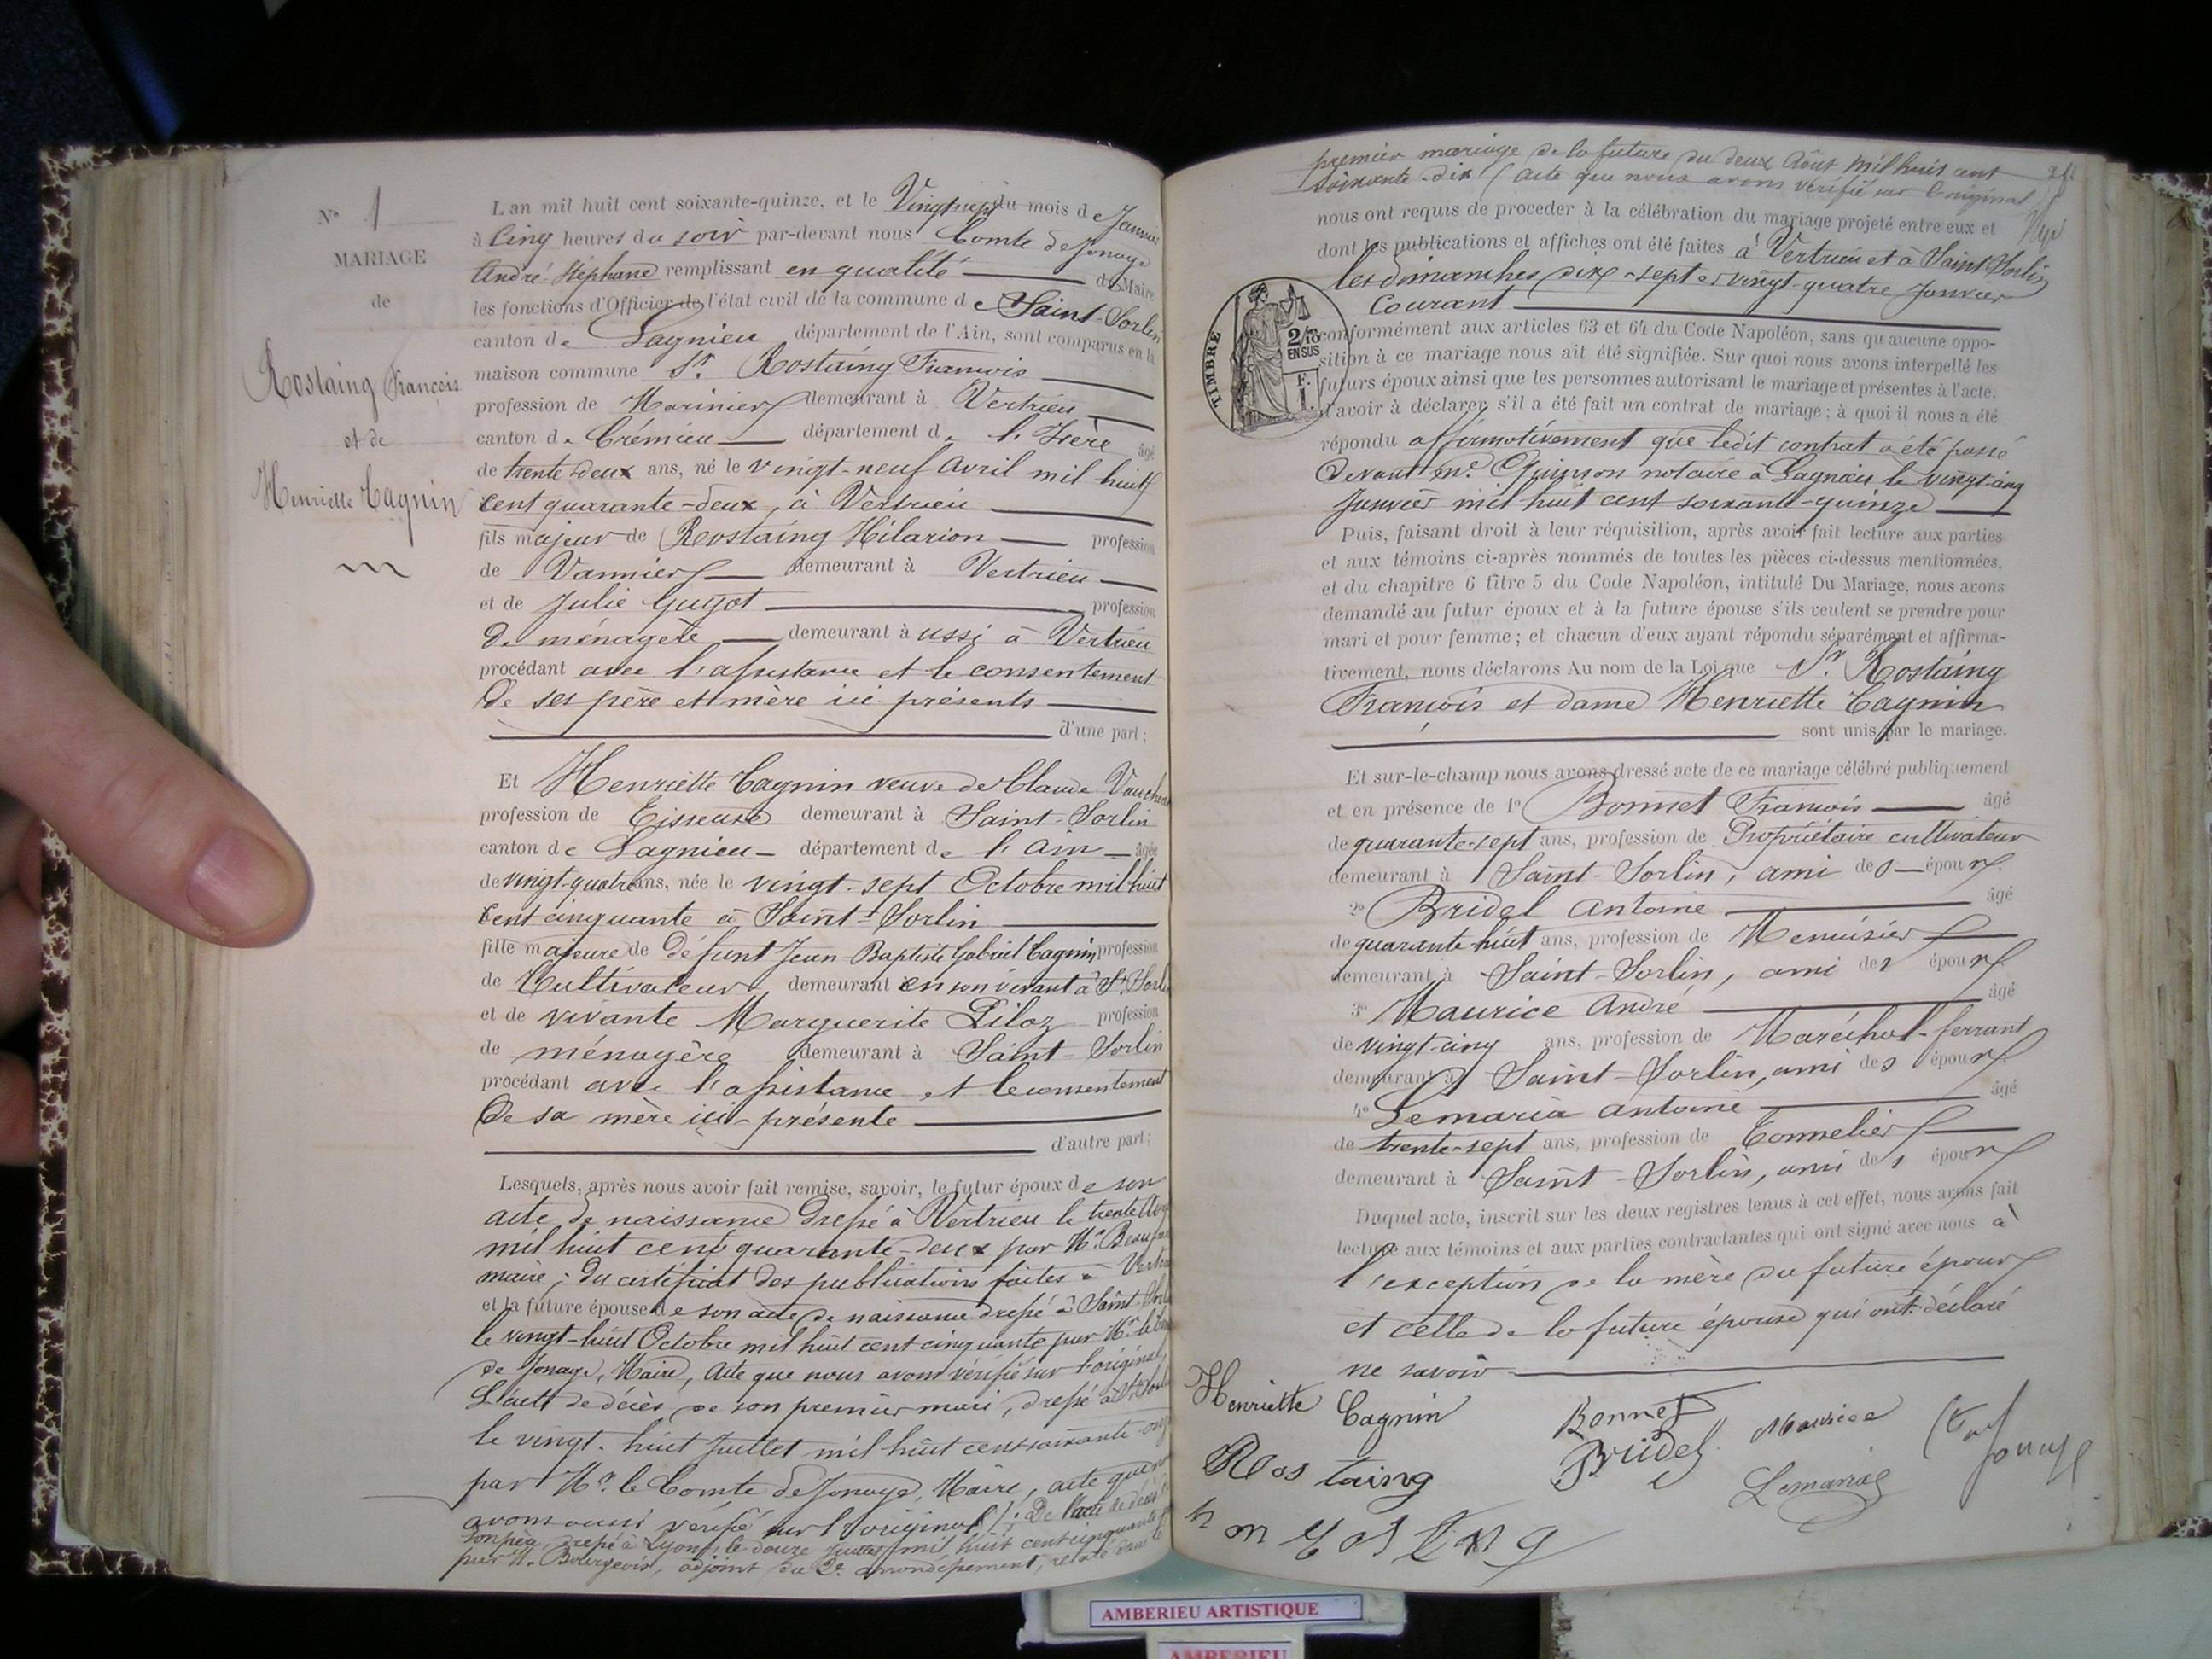 N° 1
MARIAGE
de
Rostaing François
et de
Henriette Cagnin
L'an mil huit cent soixante-quinze, et le Vingt sept du mois de Janvier
à Cinq heures du soir par-devant nous Comte de Jonage
André Stéphane remplissant en qualité de Maire
les fonctions d'Officier de l'état civil de la commune de Saint-Sorlin
canton de Lagnieu département de l'Ain, sont comparus en la
maison commune Sr. Rostaing François
profession de Marinier demeurant à Vertrieu
canton de Crémieu département de l'Isère âgé
de trente deux ans, né le vingt-neuf Avril mil huit
cent quarante-deux, à Vertrieu
fils majeur de Rostaing Hilarion profession
de Vannier demeurant à Vertrieu
et de Julie Guyot profession
de ménagère demeurant à ussi à Vertrieu
procédant avec l'assistance et le consentement
de ses père et mère ici présents
d'une part;
Et Henriette Cagnin veuve de Claude
profession de Tisseuse demeurant à Saint-Sorlin
canton de Lagnieu département de l'Ain âgée
de vingt-quatre ans, née le vingt-sept Octobre mil huit
cent cinquante à Saint-Sorlin
fille majeure de défunt Jean Baptiste Gabriel Cagnin profession
de Cultivateur, demeurant en son vivant à St Sorlin
et de vivante Marguerite Piloz profession
de ménagère demeurant à Saint-Sorlin
procédant avec l'assistance et le consentement
de sa mère ici-présente
d'autre part;
Lesquels, après nous avoir fait remise, savoir, le futur époux de son
acte de naissance dressé à Vertrieu le trente
mil huit cent quarante-deux par Mr.
maire; du certificat des publications faites à
et la future épouse de son acte de naissance dressé à Saint
le vingt-huit Octobre mil huit cent cinquante par Mr. le
de Jonage, Maire, acte que nous avons vérifié sur l'original,
L'acte de décès de son premier mari, dressé à
le vingt-huit Juillet mil huit cent soixante
par Mr. le Comte de Jonage, Maire, acte que
avons aussi vérifié sur l'original); De l'acte de décès
son père, dressé à Lyon, le douze Juillet mil huit cent cinquante
par M. Bourgeois, adjoint du 2e. arrondissement, relaté dans le
premier mariage de la future du deux Août mil huit cent
soixante-dix (acte que nous avons vérifié sur l'original
nous ont requis de proceder à la célébration du mariage projeté entre eux et
dont les publications et affiches ont été faites à Vertrieu et à Saint-Sorlin
les dimanches dix-sept et vingt-quatre Janvier
courant
TIMBRE
2/10
EN SUS
F.
1.
conformément aux articles 63 et 64 du Code Napoléon, sans qu'aucune oppo-
sition à ce mariage nous ait été signifiée. Sur quoi nous avons interpellé les
futurs époux ainsi que les personnes autorisant le mariage et présentes à l'acte,
d'avoir à déclarer s'il a été fait un contrat de mariage; à quoi il nous a été
répondu affirmativement que ledit contrat a été passé
devant Me. Quinson notaire à Lagnieu le vingt-cinq
Janvier mil huit cent soixante-quinze
Puis, faisant droit à leur réquisition, après avoir fait lecture aux parties
et aux témoins ci-après nommés de toutes les pièces ci-dessus mentionnées,
et du chapitre 6 titre 5 du Code Napoléon, intitulé Du Mariage, nous avons
demandé au futur époux et à la future épouse s'ils veulent se prendre pour
mari et pour femme; et chacun d'eux ayant répondu séparément et affirma-
tivement, nous déclarons Au nom de la Loi que Sr. Rostaing
François et dame Henriette Cagnin
sont unis par le mariage.
Et sur-le-champ nous avons dressé acte de ce mariage célébré publiquement
et en présence de 1° Bonnet François âgé
de quarante-sept ans, profession de Propriétaire cultivateur
demeurant à Saint-Sorlin, ami des époux
2° Bridel Antoine âgé
de quarante-huit ans, profession de Menuisier
demeurant à Saint-Sorlin, ami des époux
3° Maurice André âgé
de vingt-cinq ans, profession de Maréchal-ferrant
demeurant à Saint-Sorlin, ami des époux
4° Lemaria Antoine âgé
de trente-sept ans, profession de Tonnelier
demeurant à Saint-Sorlin, ami des époux
Duquel acte, inscrit sur les deux registres tenus à cet effet, nous avons fait
lecture aux témoins et aux parties contractantes qui ont signé avec nous à
l'exception de la mère du future époux
et celle de la future épouse qui ont déclaré
ne savoir
Henriette Cagnin Bonnet Maurice
Rostaing Bridel Lemaria Jonage
AMBERIEU ARTISTIQUE
AMBERIEU